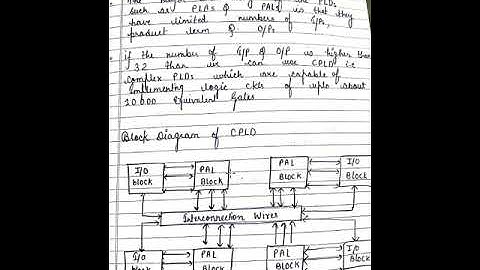 such as PLAs & PALs is that they
have limited numbers of I/Ps,
product term & O/Ps
if the number of I/P & O/P is higher than
32 than we can use CPLD i.e
complex PLDs which are capable of
Implementing logic ckts of upto about
20.000 Equivalent Gates
Block Diagram of CPLD
I/O Block
PAL Block
PAL Block
I/O Block
Interconnection Wires
I/O Block
PAL Block
PAL Block
I/O Block